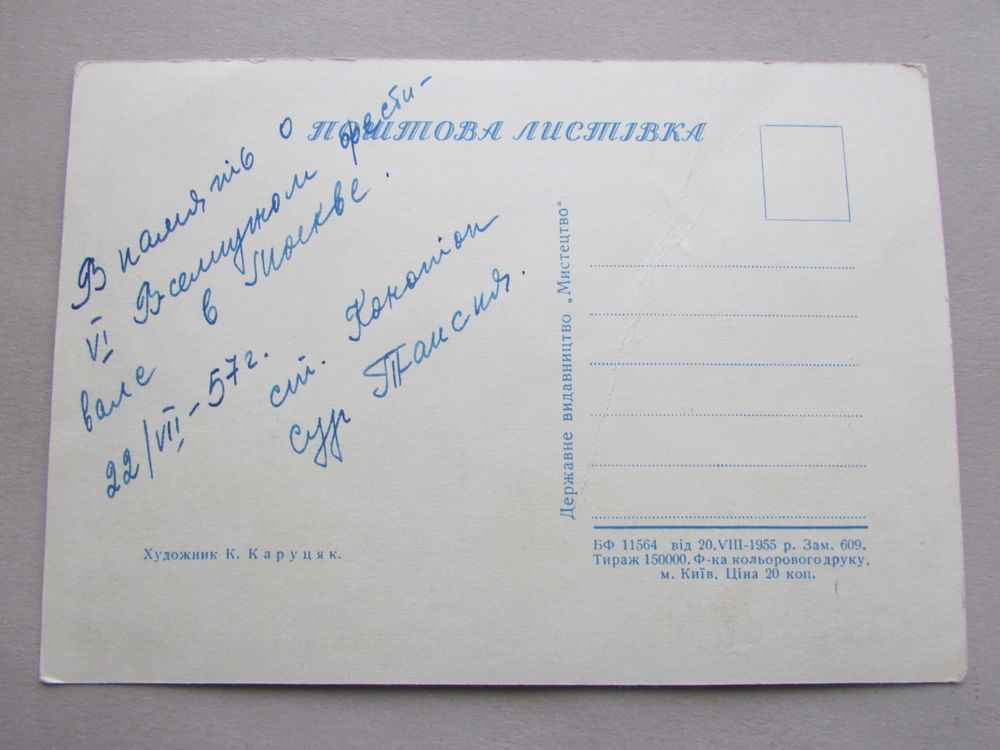 ПОШТОВА ЛИСТІВКА
В память о
VI Всемирном фести-
вале в Москве.
22/VII-57г.
ст. Конотоп
Державне видавництво „Мистецтво“
Художник К. Каруцяк.
БФ 11564 від 20.VIII-1955 р. Зам. 609.
Тираж 150000. Ф-ка кольорового друку,
м. Київ. Ціна 20 коп.